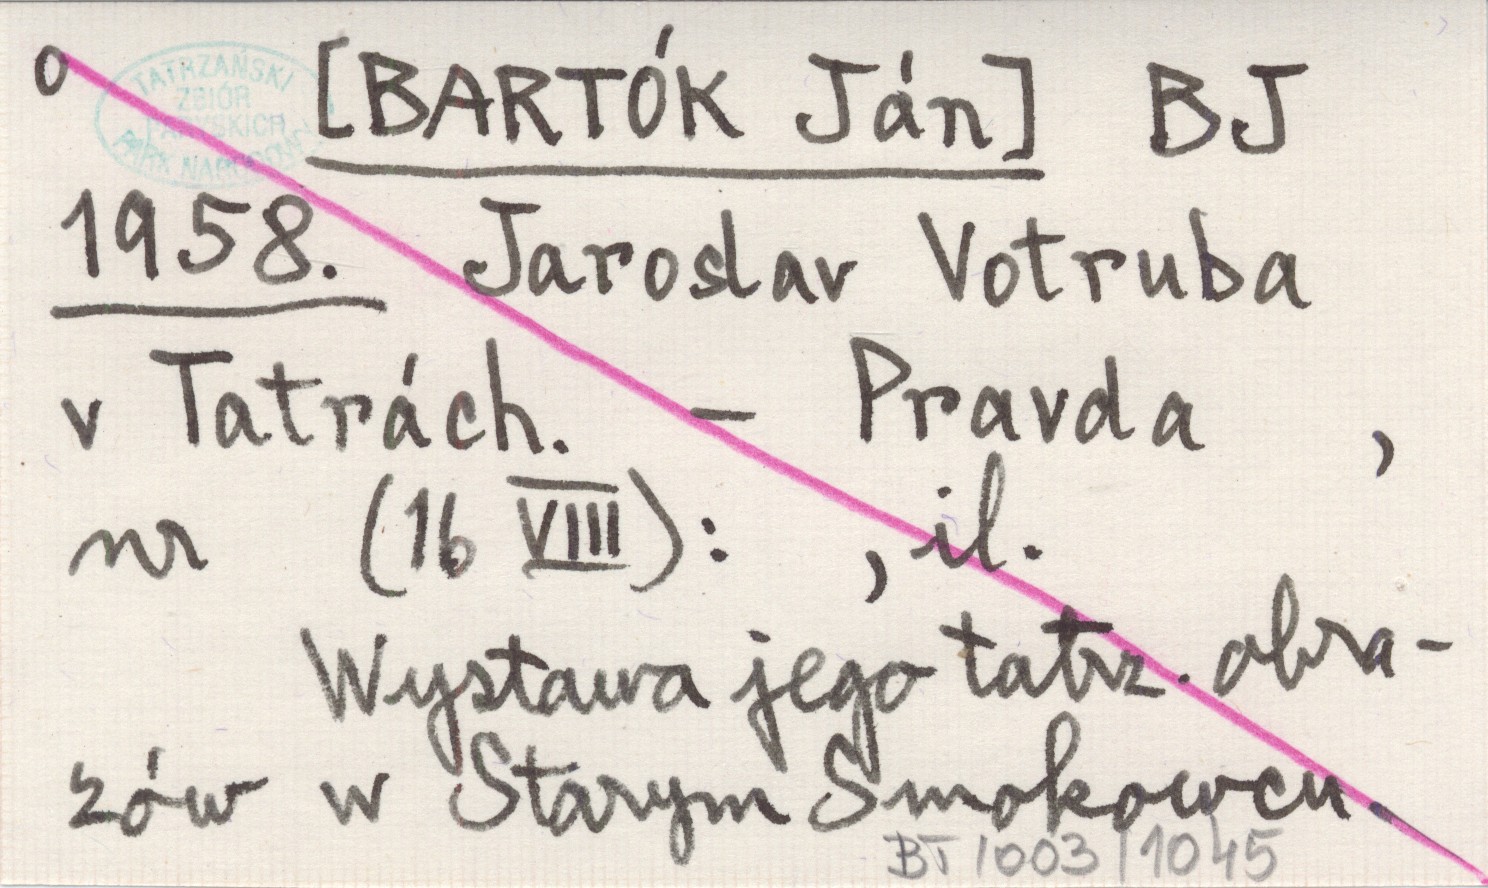 o [BARTÓK Ján] BJ
TATRZAŃSKI
ZBIÓR
PARYSKICH
PARK NARODOWY
1958. Jaroslav Votruba
v Tatrách. – Pravda ,
nr (16 VIII): , il.
Wystawa jego tatrz. obra-
zów w Starym Smokowcu.
BT 1003/1045